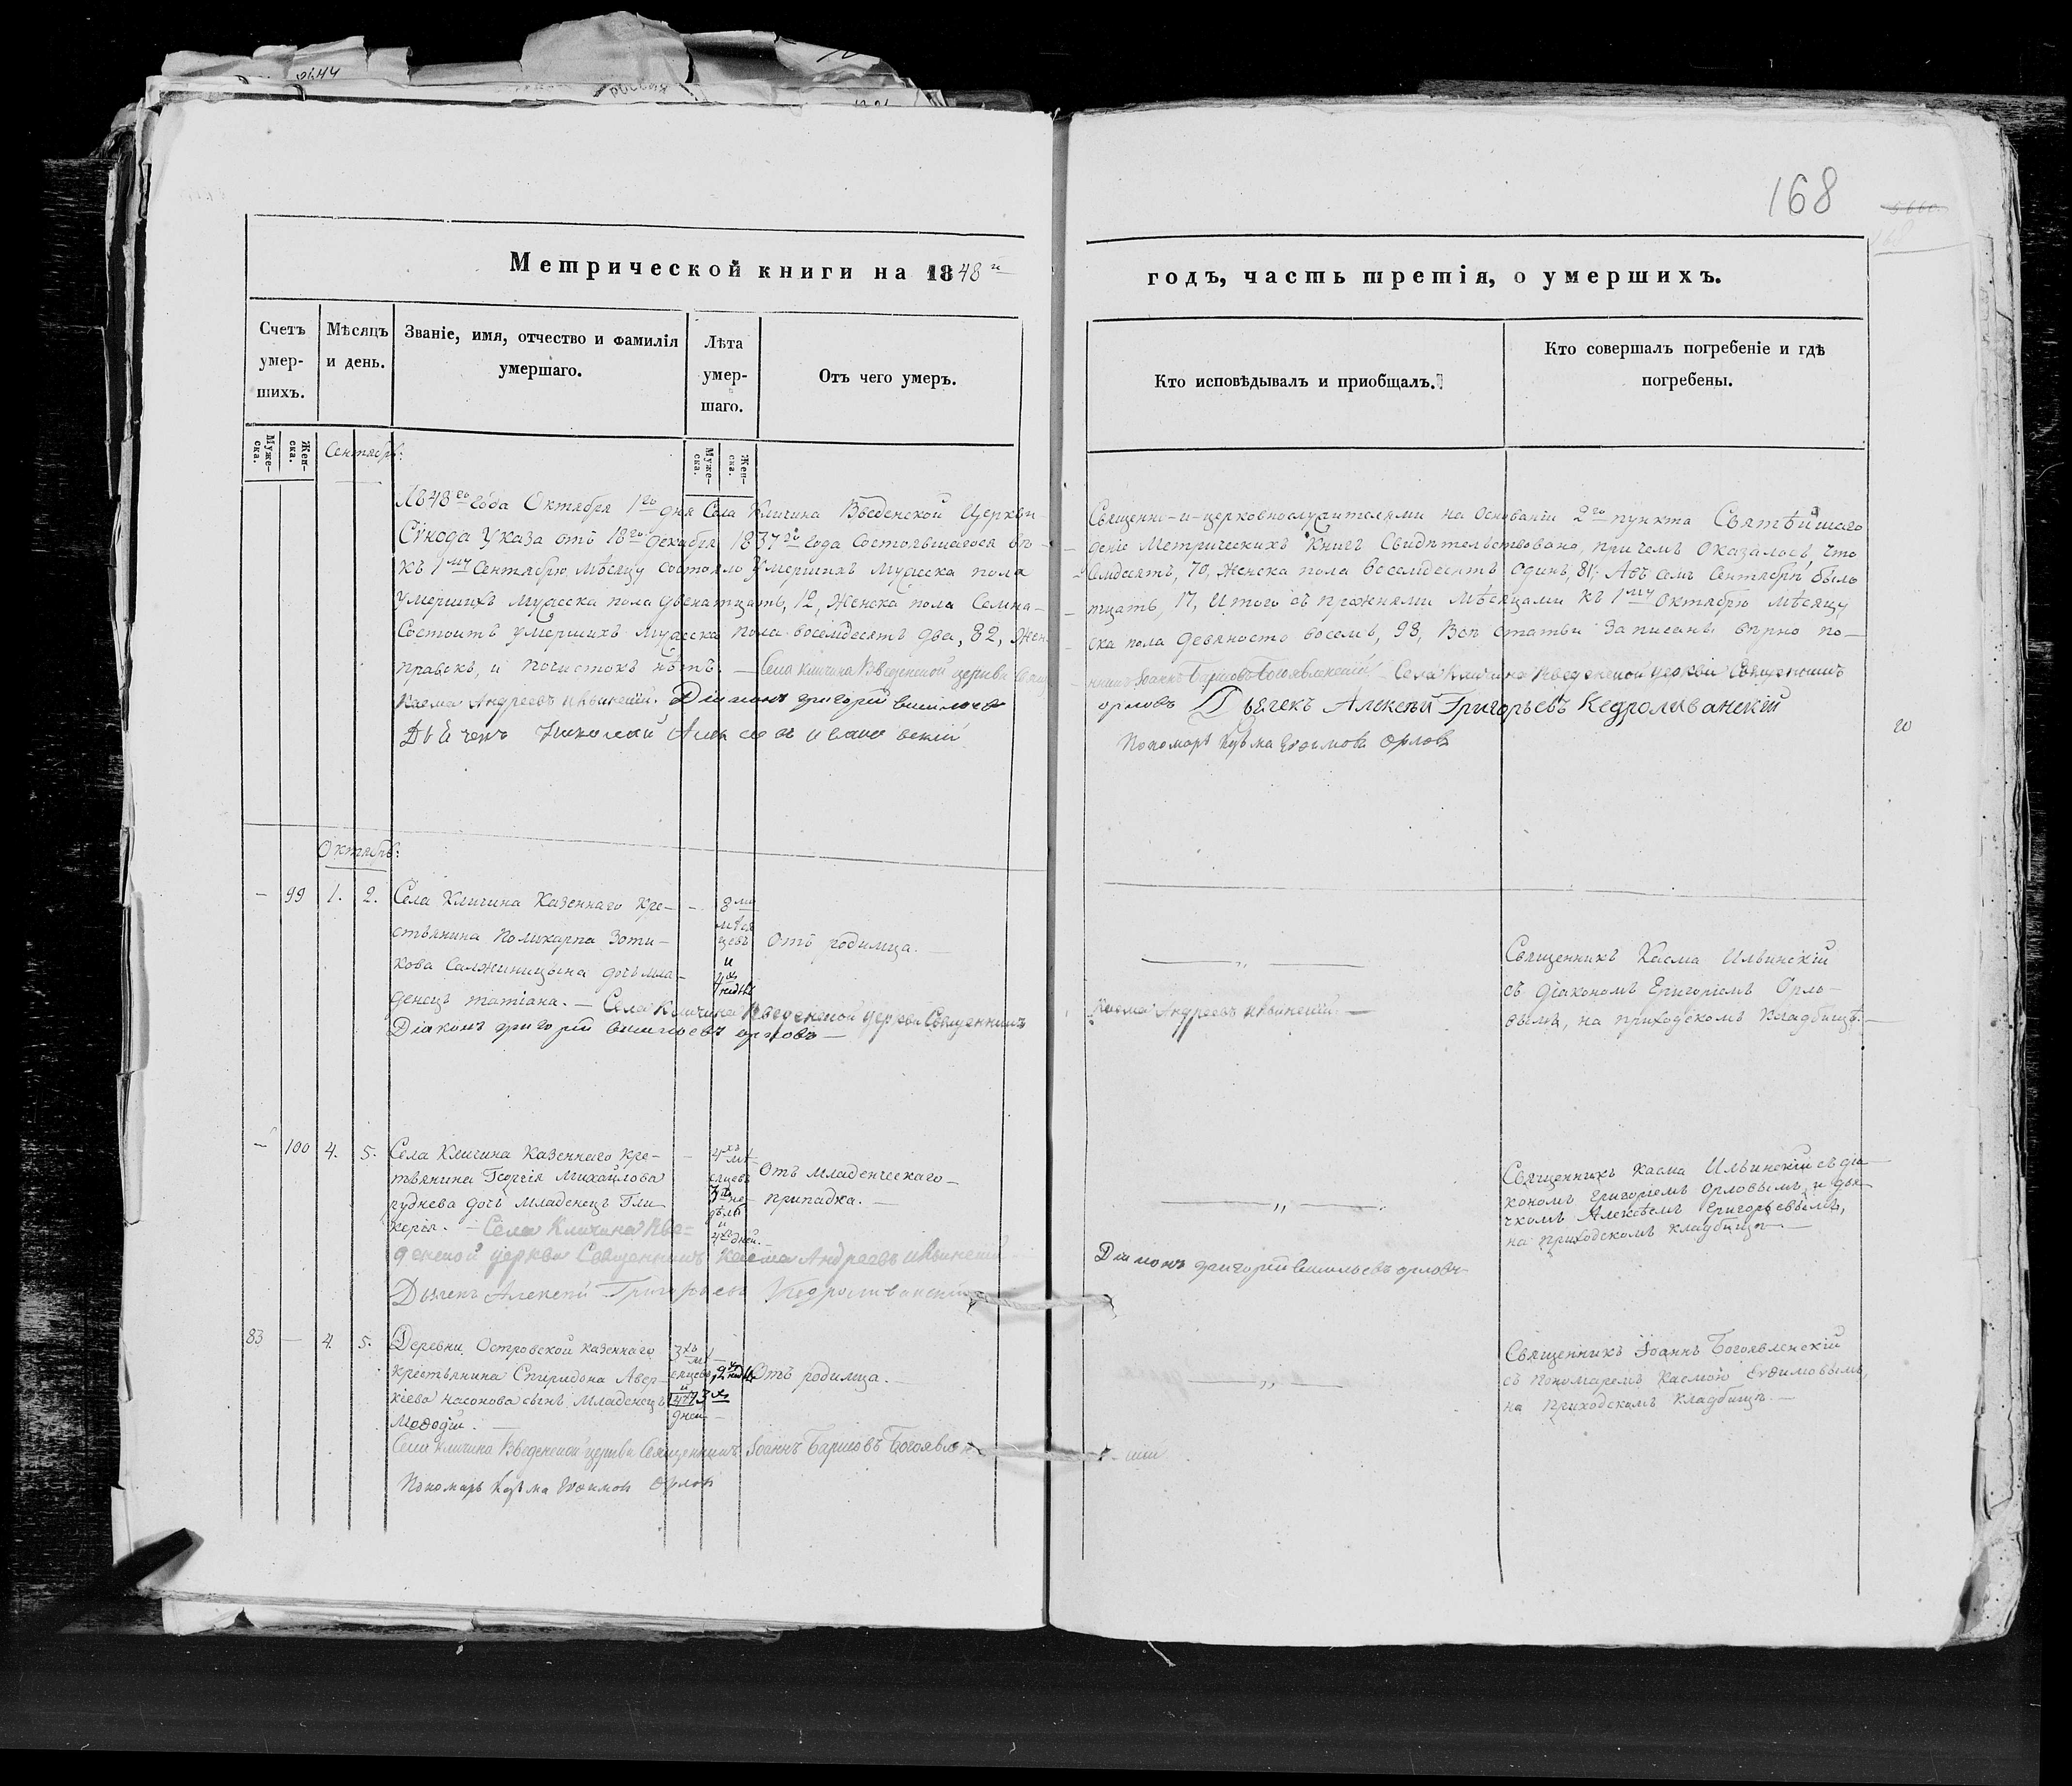 168
Метрической книги на 1848й
годъ, часть третія, о умершихъ.
Счетъ умер-шихъ.
Мѣсяцъ и день.
Званіе, имя, отчество и фамилія умершаго.
Лѣта умер-шаго.
Отъ чего умеръ.
Кто исповѣдывалъ и приобщалъ.
Кто совершалъ погребеніе и гдѣ погребены.
Муже-ска.
Жен-ска.
Муже-ска.
Жен-ска.
Сентябрь:
1848го года Октября 1го дня Села Кличина Введенской Церкви
Священно-и-церковнослужителями на основаніи 2го пункта Святѣйшаго
Сѵнода Указа отъ 18го декабря 1837го года состоявшагося
деніе Метрическихъ Книгъ Свидѣтельствовано, при чемъ оказалось, что
къ 1му Сентябрю мѣсяцу состояло умершихъ мужеска пола
семдесятъ, 70, женска пола восемдесятъ одинъ, 81; А въ семъ Сентябрѣ было
умершихъ мужеска пола двенатцать, 12, женска пола семна-
тцать, 17, Итого съ прежними мѣсяцами къ 1му Октябрю мѣсяцу
состоитъ умершихъ мужеска пола восемдесятъ два, 82, жен-
ска пола девяносто восемъ, 98, Всѣ статьи записаны вѣрно по-
правокъ, и почистокъ нѣтъ. — Села Кличина Введенской церкви Свящ
нникъ Іоаннъ Барисовъ Богоявленскій Села Кличина Введенской церкви Священникъ
Касма Андреевъ Ильинскій. Діаконъ григорій васильевъ
орловъ Дьячекъ Алексѣй Григорьевъ Кедроливанскій
Дьячекъ Николай
Пономарь Кузьма Ефимовъ Орловъ
20
Октябрь:
— 99 1. 2. Села Кличина Казеннаго Кре-
стьянина Поликарпа Зоти-
кова Салжиницына дочь мла-
денецъ татіана. — Села Кличина Введенской церкви Священникъ
Касма Андреевъ Ильинскій. —
Діаконъ григорій васильевъ орловъ —
8ми мѣся цевъ и
Отъ родимца. —
— „ —
Священникъ Касма Ильинскій
съ діакономъ Григоріемъ Орло-
вымъ, на приходскомъ кладбищѣ. —
— 100 4. 5. Села Кличина Казеннаго кре-
тьянина Георгія Михайлова
руднева дочь младенецъ Гли
керія. — Села Кличина Вве-
денской церкви Священникъ Касма Андреевъ Ильинскій
Діаконъ григорій васильевъ орловъ
Дьячекъ Алексѣй Григорьевъ Кедроливанскій
4хъ мѣ-
сяцевъ
3х не-
дѣль
и
4хъ дней. —
Отъ младенческаго
припадка. —
— „ —
Священникъ Касма Ильинскій съ діа-
кономъ Григоріемъ Орловымъ и дья-
чкомъ Алексѣемъ Григорьевымъ,
на приходскомъ кладбищѣ —
83 — 4. 5. Деревни Островской казеннаго
крестьянина Спиридона Авер-
кіева Насонова сынъ младенецъ
Меѳодій. —
3хъ мѣ-
сяцевъ,
дней —
Отъ родимца. —
— „ —
Священникъ Іоаннъ Богоявленскій
съ пономаремъ Касмою Евѳимовымъ,
на Приходскомъ кладбищѣ. —
Села Кличина Введенской церкви Священникъ Іоаннъ Барисовъ Богоявлен-скій
Пономарь Кузьма Ефимовъ Орловъ